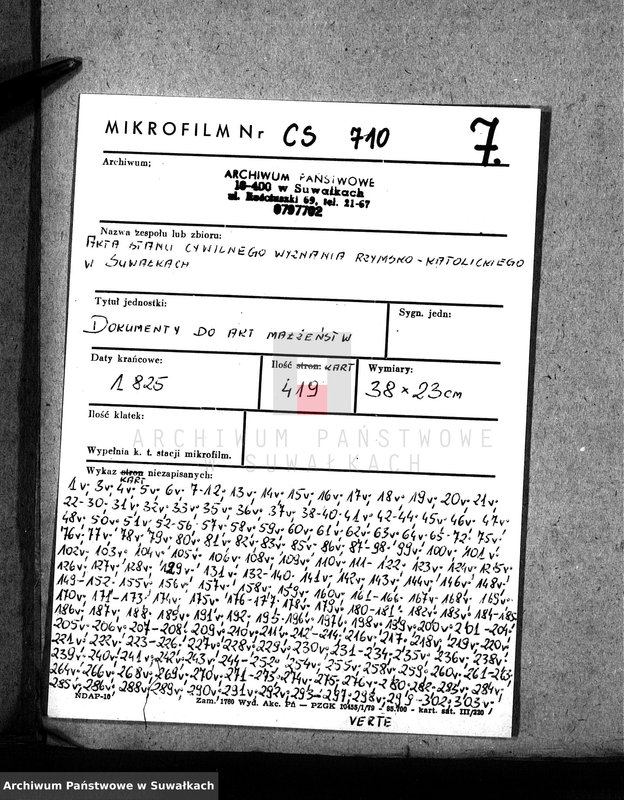 MIKROFILM Nr CS 710
7.
Archiwum;
ARCHIWUM PAŃSTWOWE
16-400 w Suwałkach
ul. Kościuszki 69, tel. 21-67
0797702
Nazwa zespołu lub zbioru:
AKTA STANU CYWILNEGO WYZNANIA RZYMSKO-KATOLICKIEGO
W SUWAŁKACH
Tytuł jednostki:
Sygn. jedn:
DOKUMENTY DO AKT MAŁŻEŃSTW
Daty krańcowe:
Ilość stron: KART
Wymiary:
1825
419
38 × 23 cm
Ilość klatek:
ARCHIWUM PAŃSTWOWE
W SUWAŁKACH
Wypełnia k. t. stacji mikrofilm.
Wykaz stron niezapisanych:
KART
1v; 3v; 4v; 5v; 6v; 7-12; 13v; 14v; 15v; 16v; 17v; 18v; 19v; 20v; 21v;
22-30; 31v; 32v; 33v; 35v; 36v; 37v; 38-40; 41v; 42-44; 45v; 46v; 47v;
48v; 50v; 51v; 52-56; 57v; 58v; 59v; 60v; 61v; 62v; 63v; 64v; 65-72; 75v;
76v; 77v; 78v; 79v; 80v; 81v; 82v; 83v; 85v; 86v; 87-98; 99v; 100v; 101v;
102v; 103v; 104v; 105v; 106v; 108v; 109v; 110v; 111-122; 123v; 124v; 125v;
126v; 127v; 128v; 129v; 131v; 132-140; 141v; 142v; 143v; 144v; 146v; 148v;
149-152; 155v; 156v; 157v; 158v; 159v; 160v; 161-166; 167v; 168v; 169v;
170v; 171-173; 174v; 175v; 176-177; 178v; 179v; 180-181; 182v; 183v; 184-185
186v; 187v; 188; 189v; 191v; 192; 195-196; 197v; 198v; 199v; 200v; 201-204;
205v; 206v; 207-208; 209v; 210v; 211v; 212-214; 216v; 217; 218v; 219v; 220v;
221v; 222v; 223-226; 227v; 228v; 229v; 230v; 231-234; 235v; 236v; 238v;
239v; 240v; 241v; 242v; 243v; 244-252; 254v; 255v; 258v; 259v; 260v; 261-263;
264v; 266v; 268v; 269v; 270v; 271-273; 274v; 275; 276v-280; 282-283v; 284v;
285v; 286v; 288v; 289v; 290v; 291v; 292v; 293-297; 298v; 299-302; 303v;
NDAP-10
Zam. 1760 Wyd. Akc. PA — PZGK 10455/1/79 - 85.700 - kart. sat. III/220
VERTE
Archiwum Państwowe w Suwałkach